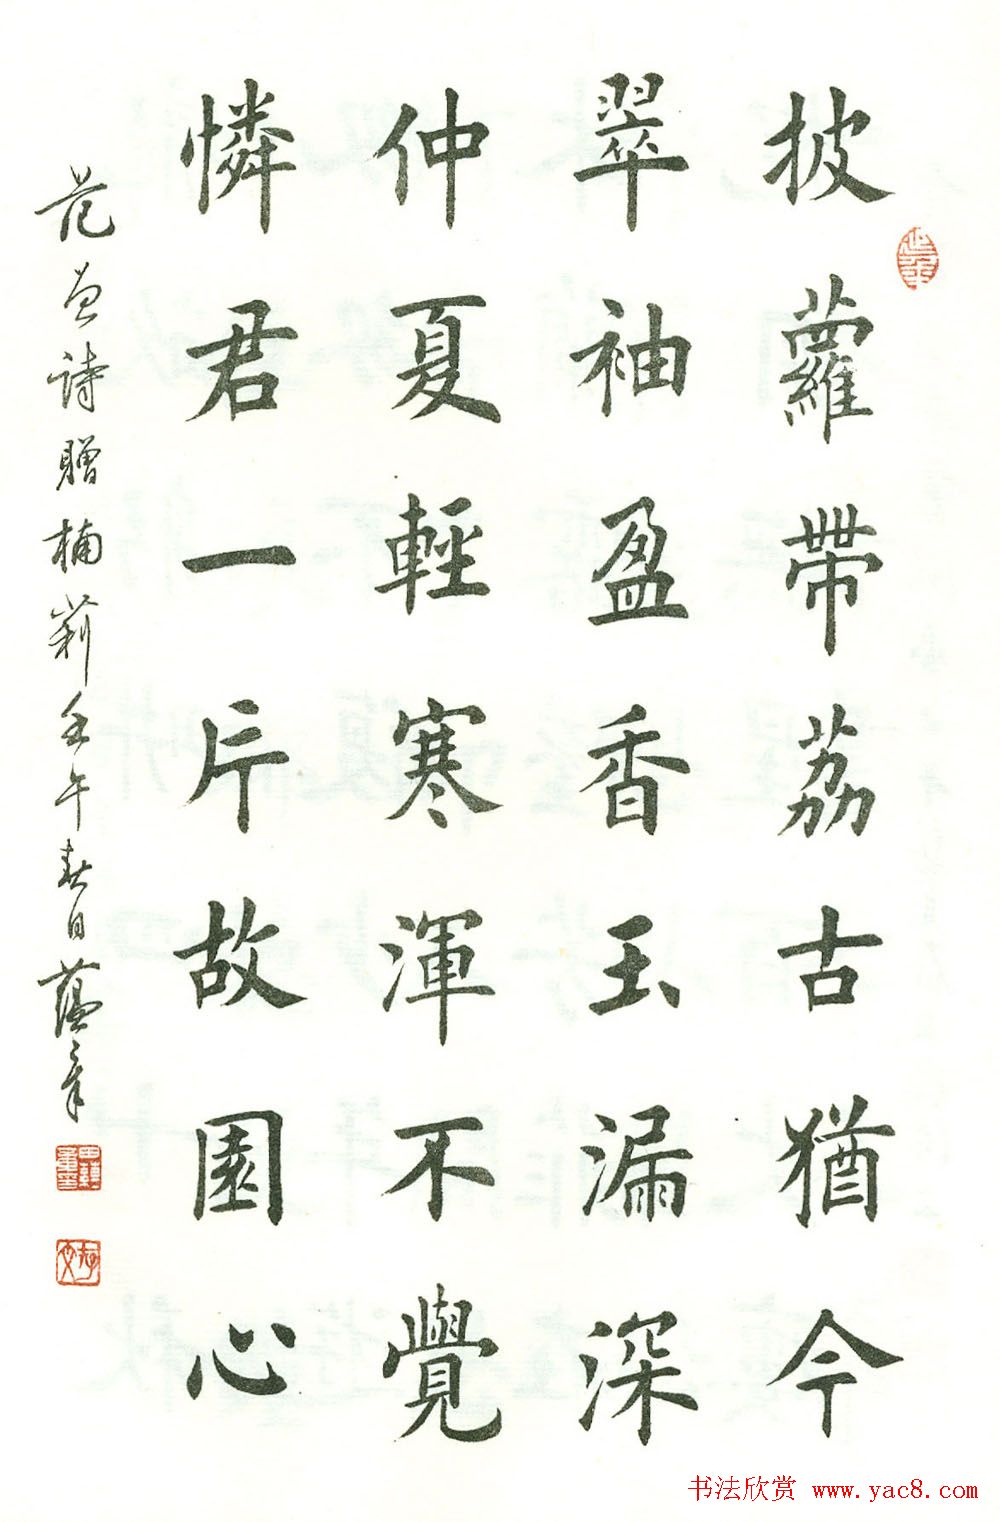 披蘿帶荔古猶今
翠袖盈香玉漏深
仲夏輕寒渾不覺
憐君一片故園心
范曾詩贈楠莉壬午春日蘊章
书法欣赏 www.yac8.com